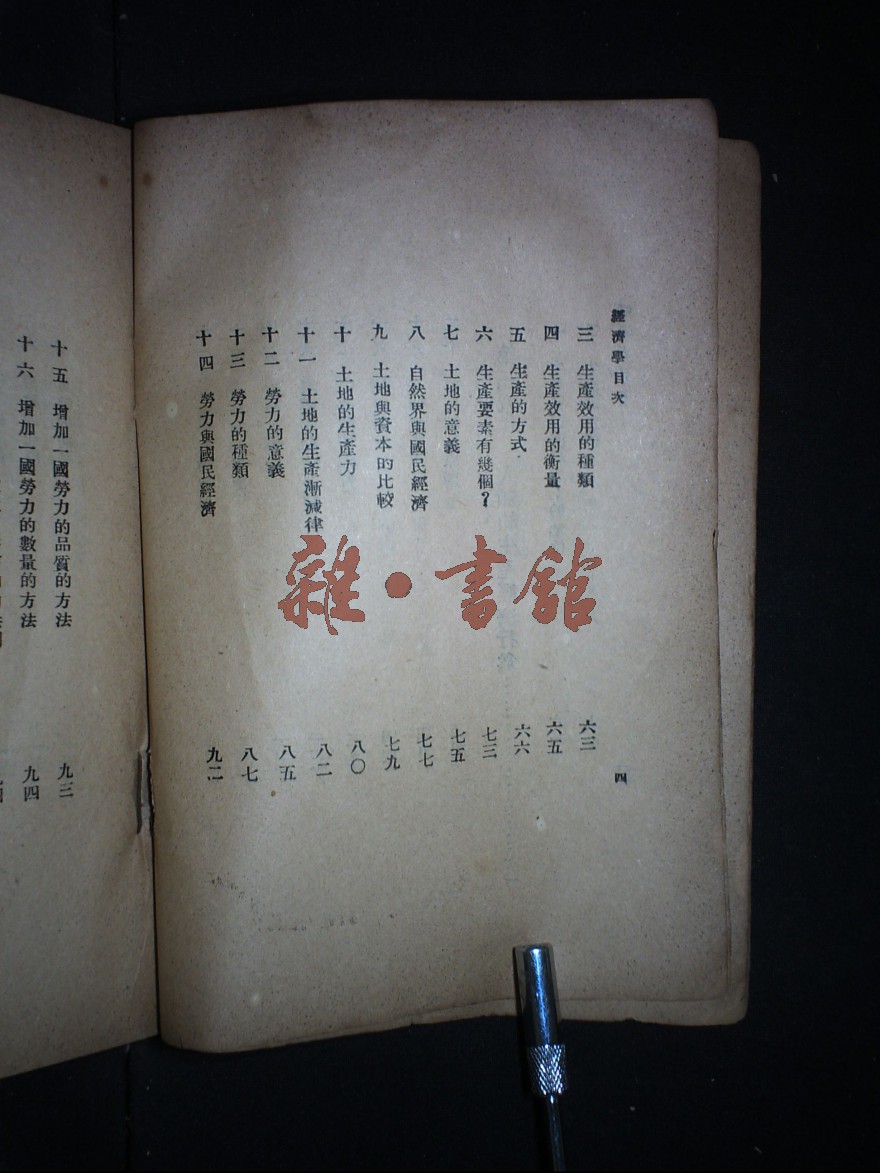 經濟學目次
四
三 生產效用的種類 六三
四 生產效用的衡量 六五
五 生產的方式 六六
六 生產要素有幾個？ 七三
七 土地的意義 七五
八 自然界與國民經濟 七七
九 土地與資本的比較 七九
十 土地的生產力 八〇
十一 土地的生產漸減律 八二
十二 勞力的意義 八五
十三 勞力的種類 八七
十四 勞力與國民經濟 九二
十五 增加一國勞力的品質的方法 九三
十六 增加一國勞力的數量的方法 九四
雜·書館